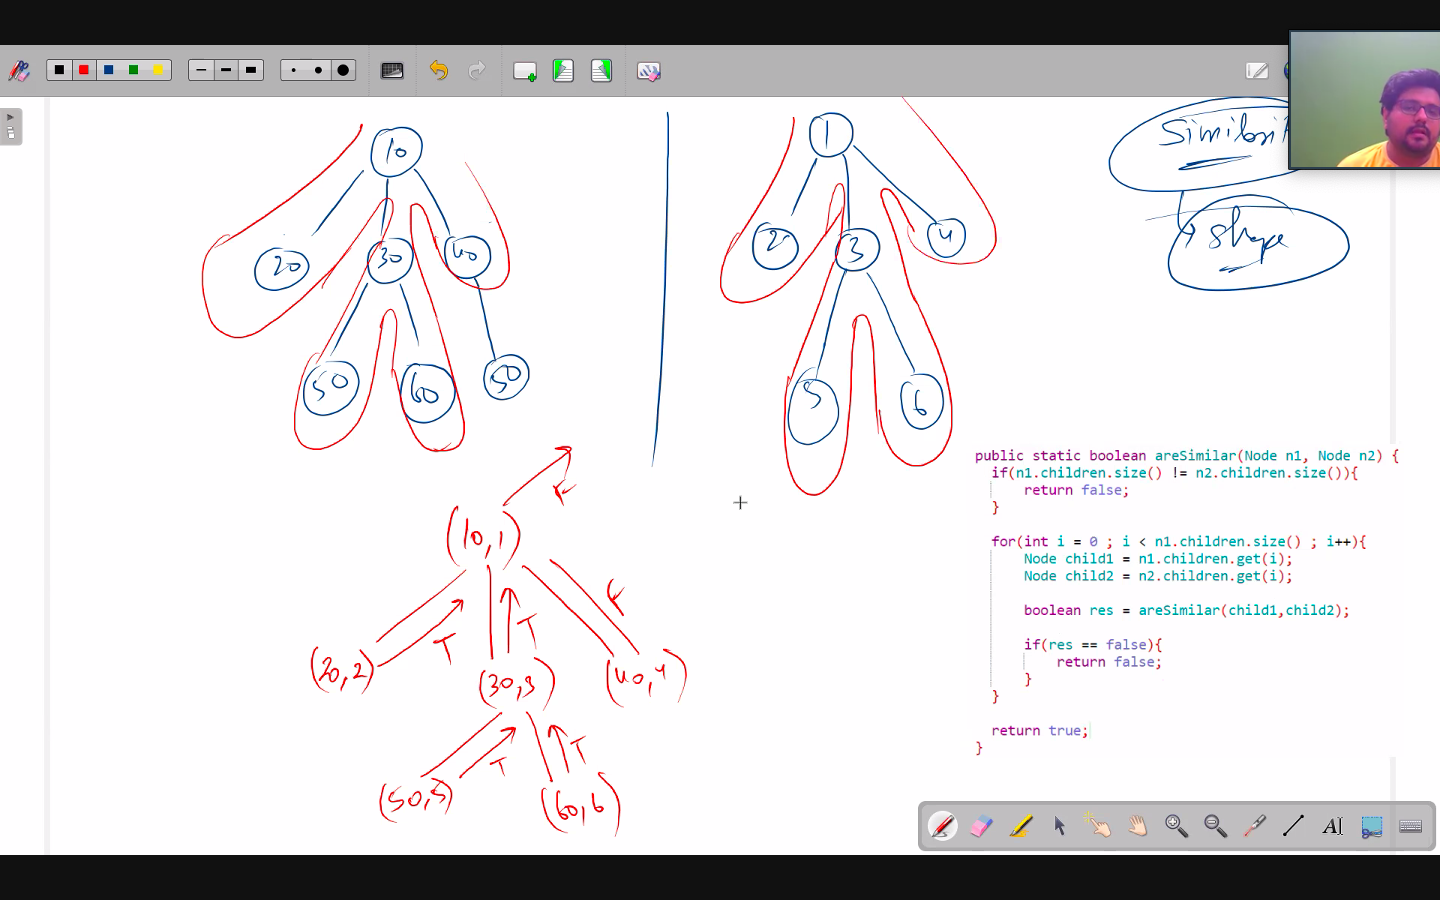 10
20
30
40
50
60
50
1
2
3
4
5
6
shape
(10,1)
F
T
T
F
(20,2)
(30,3)
(40,4)
T
T
(50,5)
(60,6)
public static boolean areSimilar(Node n1, Node n2) {
if(n1.children.size() != n2.children.size()){
return false;
}
for(int i = 0 ; i < n1.children.size() ; i++){
Node child1 = n1.children.get(i);
Node child2 = n2.children.get(i);
boolean res = areSimilar(child1,child2);
if(res == false){
return false;
}
}
return true;
}
AI